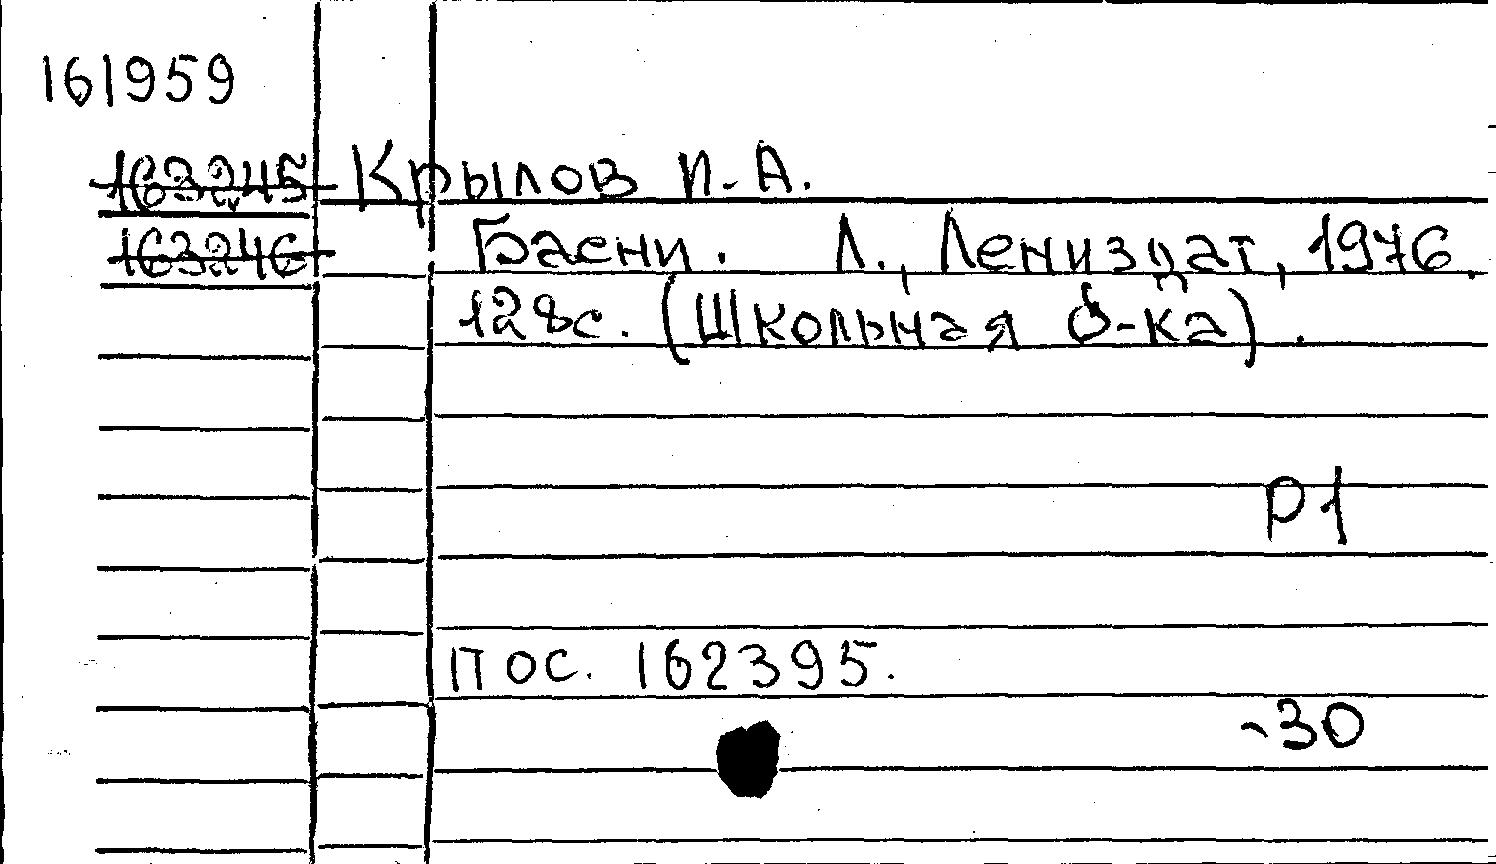 161959
163245 Крылов И.А.
163246 Басни. Л., Лениздат, 1976.
128с. (Школьная б-ка).
Р1
пос. 162395.
-30